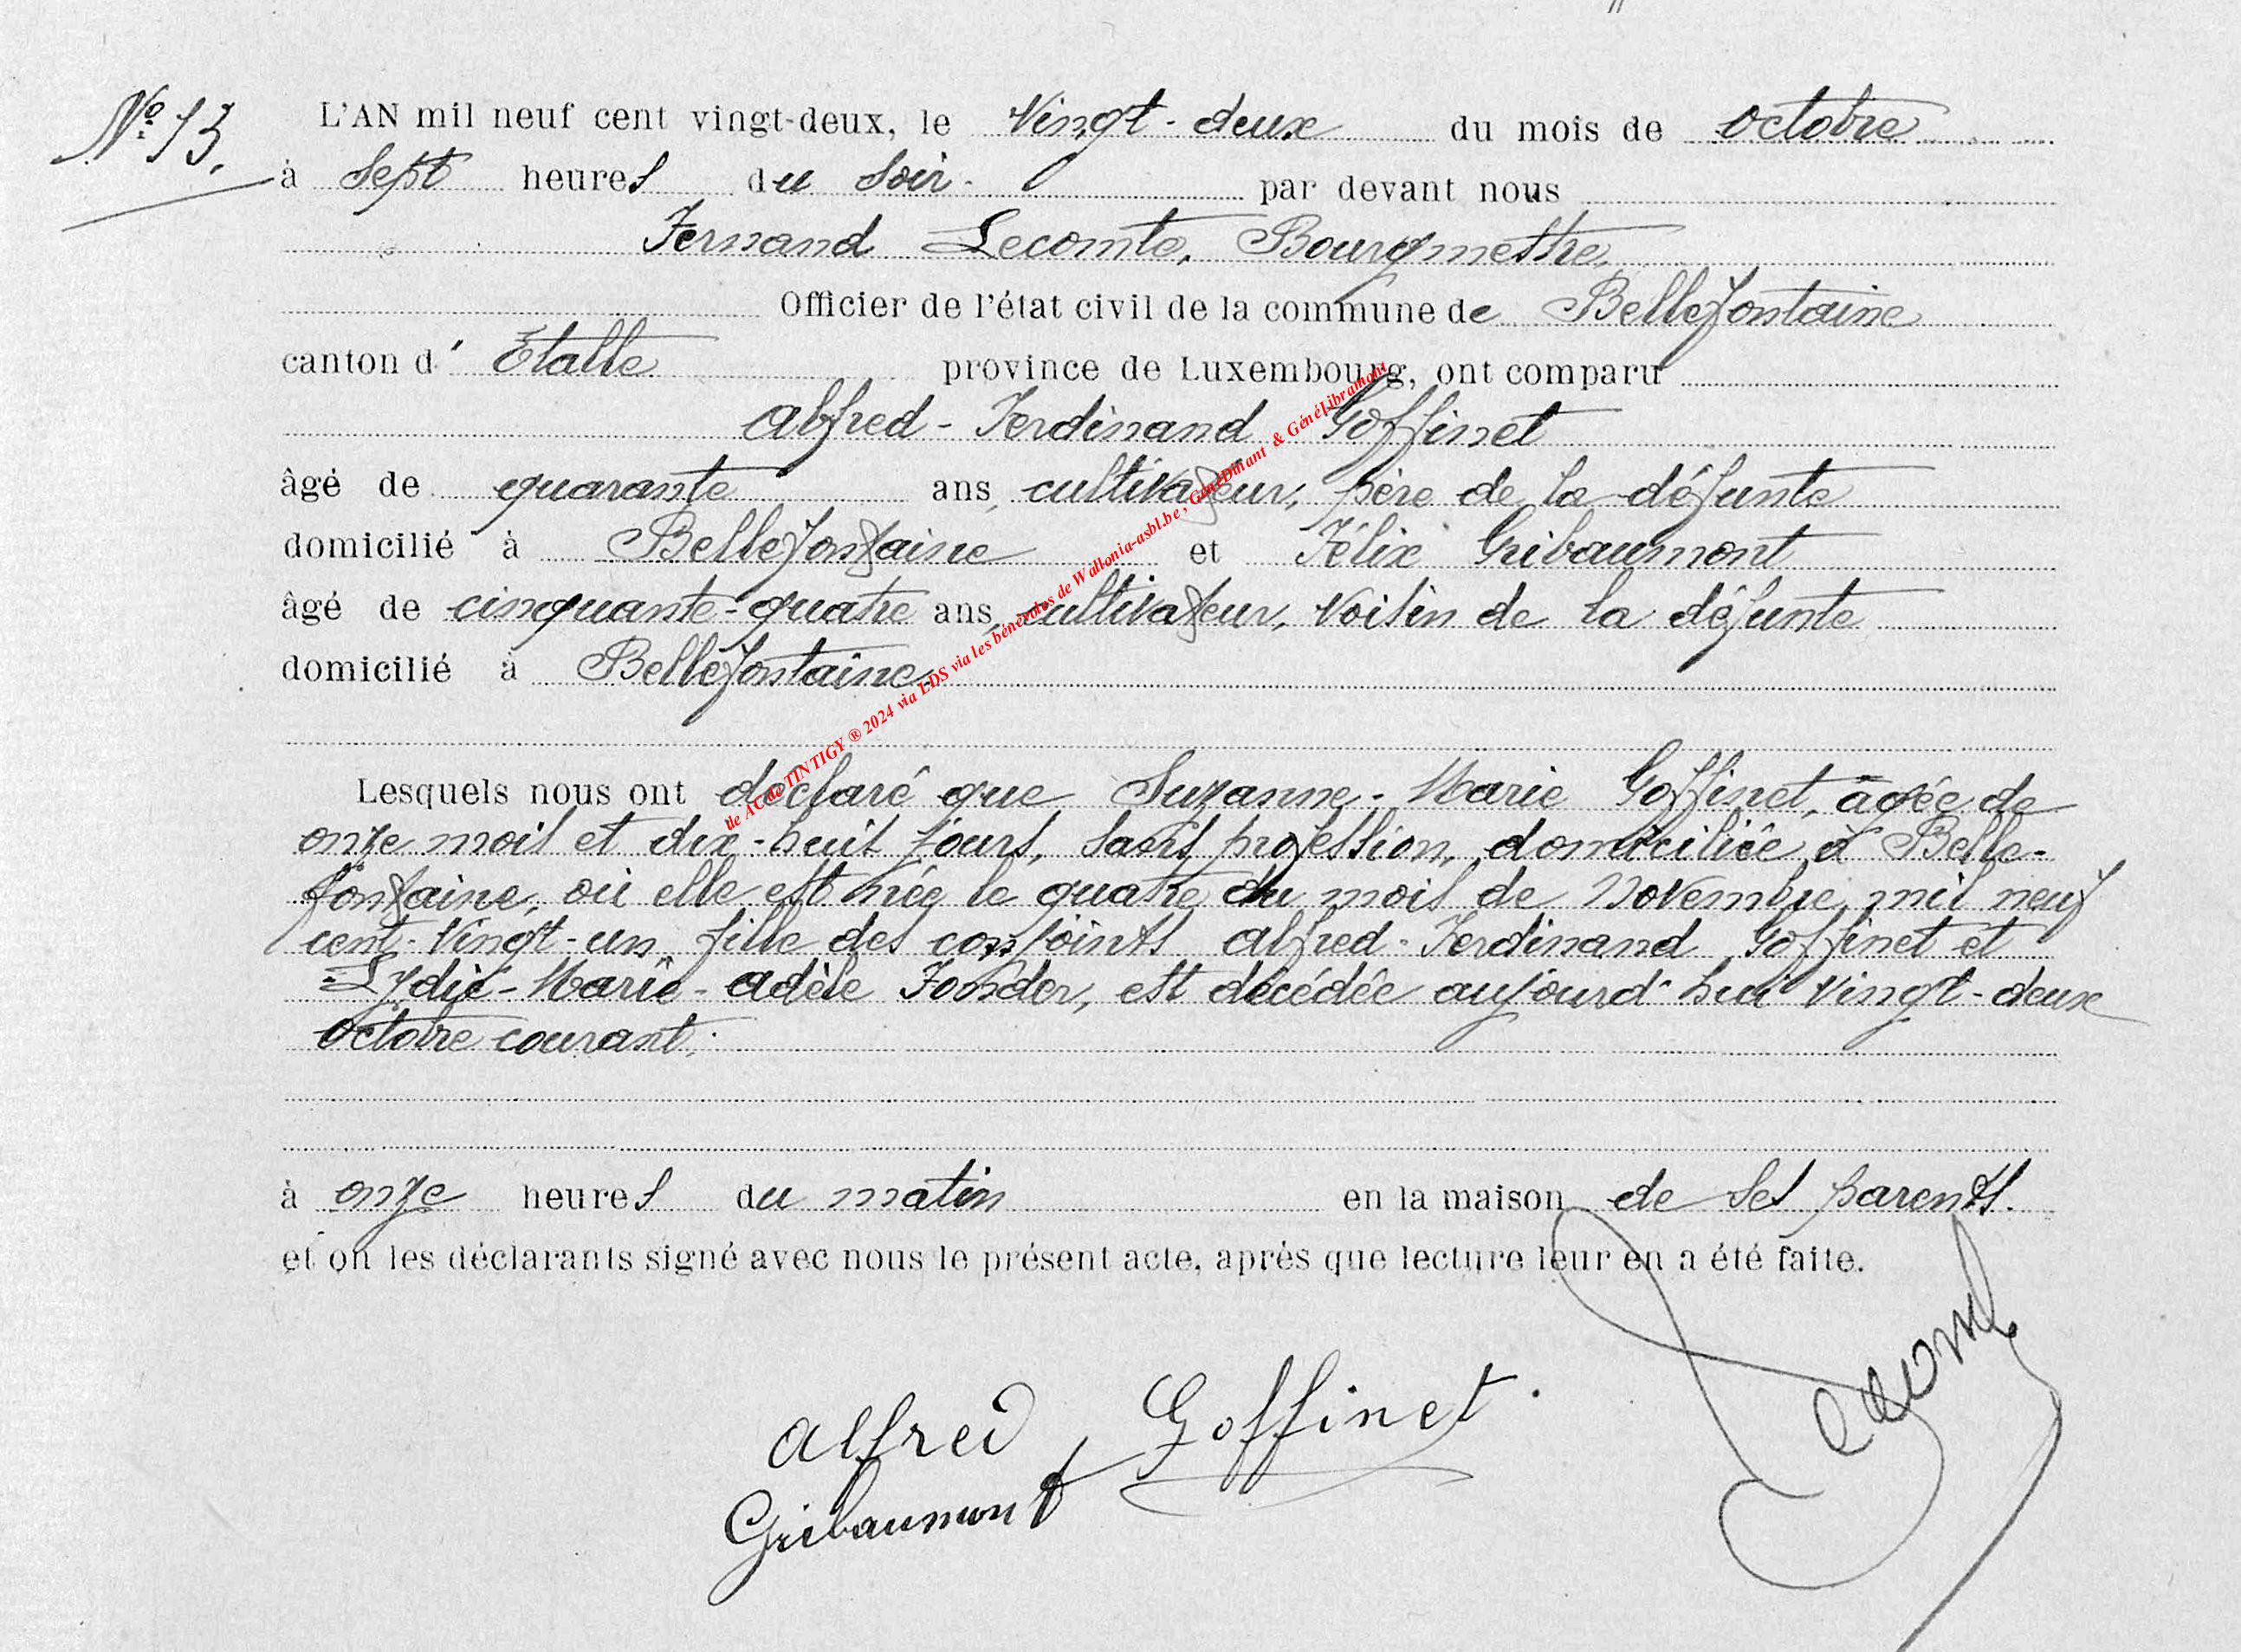 Nº 13.
L'AN mil neuf cent vingt-deux, le vingt-deux du mois de octobre
à sept heures du soir par devant nous
Fernand Lecomte, Bourgmestre,
Officier de l'état civil de la commune de Bellefontaine
canton d' Etalle province de Luxembourg, ont comparu
Alfred-Ferdinand Goffinet
âgé de quarante ans, cultivateur, père de la défunte
domicilié à Bellefontaine et Félix Gribaumont
âgé de cinquante-quatre ans, cultivateur, voisin de la défunte
domicilié à Bellefontaine.
de AC de TINTIGY ® 2024 via LDS via les bénévoles de Wallonia-asbl.be, GénéDinant & GénéLibramont
Lesquels nous ont déclaré que Suzanne-Marie Goffinet, âgée de
onze mois et dix-huit jours, sans profession, domiciliée à Belle-
fontaine, où elle est née le quatre du mois de novembre mil neuf
cent-vingt-un, fille des conjoints Alfred-Ferdinand Goffinet et
Lydie-Marie-Adèle Fonder, est décédée aujourd'hui vingt-deux
octobre courant,
à onze heures du matin en la maison de ses parents.
et on les déclarants signé avec nous le présent acte, après que lecture leur en a été faite.
Lecomte
Alfred Goffinet.
Gribaumont